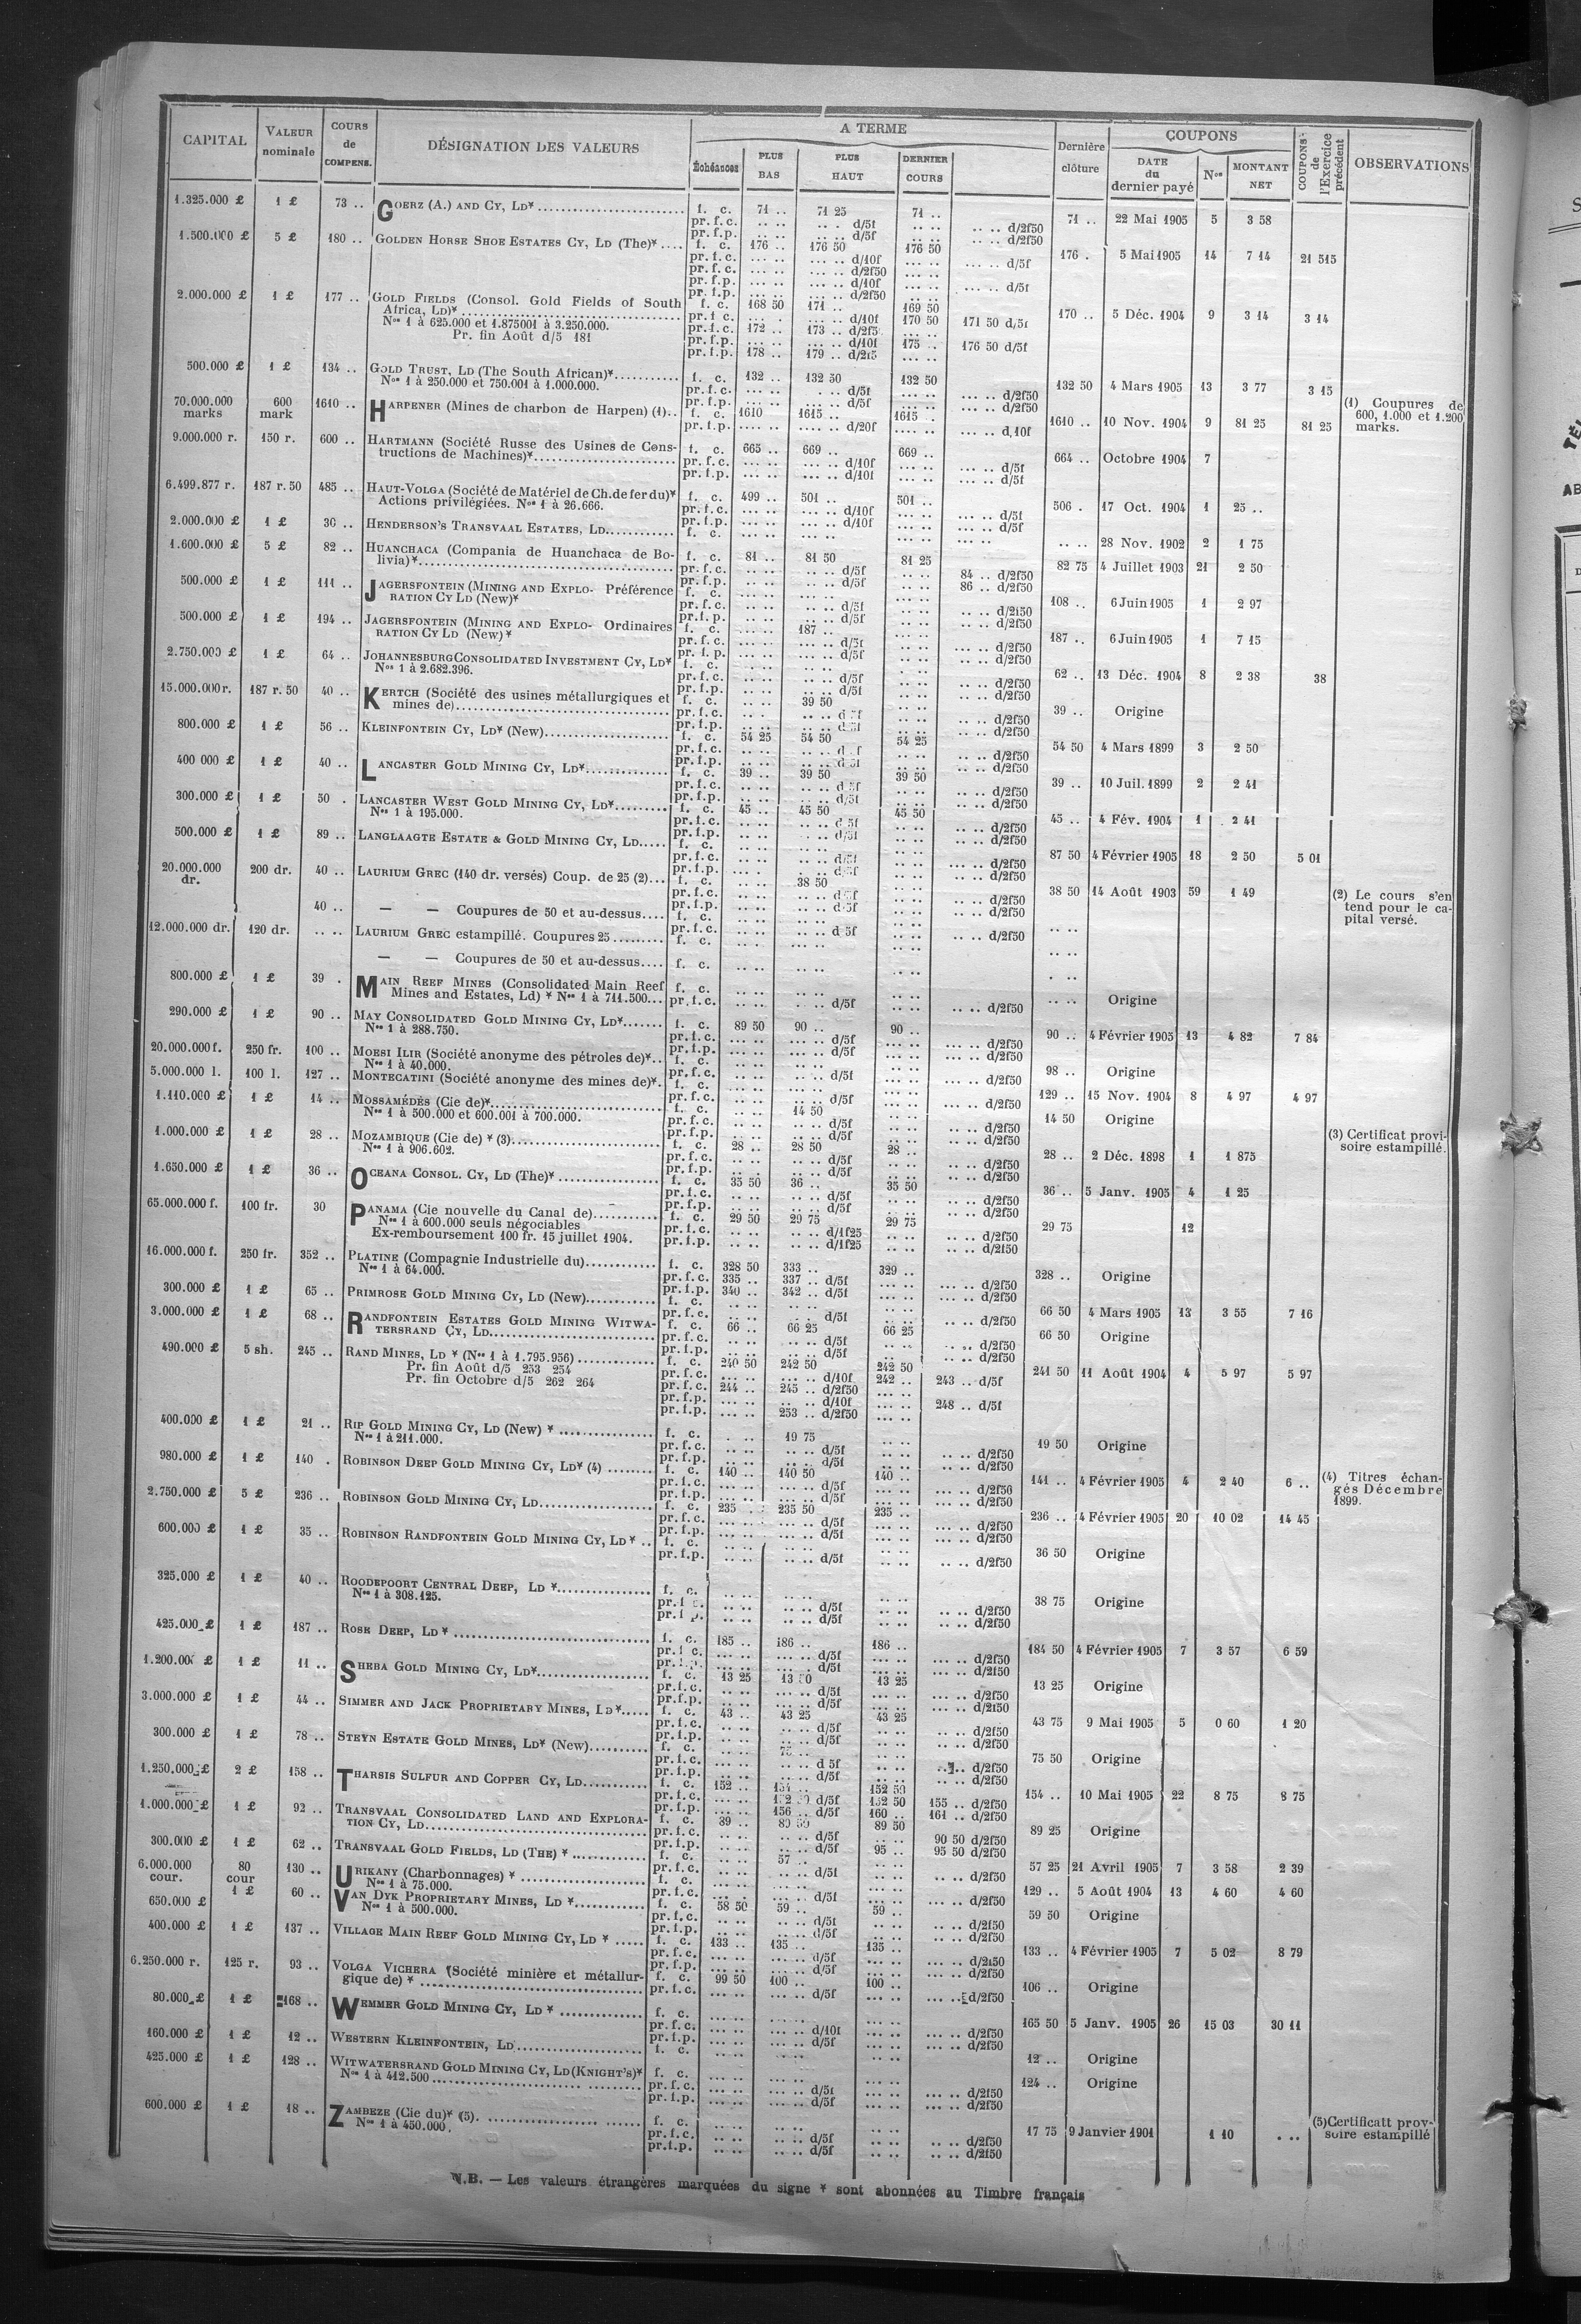 CAPITAL | VALEUR nominale | COURS de COMPENS. | DÉSIGNATION DES VALEURS | A TERME | Dernière clôture | COUPONS | COUPONS de l'Exercice précédent | OBSERVATIONS
Échéances | PLUS BAS | PLUS HAUT | DERNIER COURS | DATE du dernier payé | Nos | MONTANT NET
1.325.000 £ 1 £ 73 .. GOERZ (A.) AND CY, LD* f. c. 71 .. 71 25 71 .. 71 .. 22 Mai 1905 5 3 58
pr. f. c. .. .. .. . d/5f .. .. .. .. d/2f50
pr. f. p. .. .. .. .. d/5f .. .. .. .. d/2f50
1.500.000 £ 5 £ 180 .. GOLDEN HORSE SHOE ESTATES CY, LD (The)* .... f. c. 176 .. 176 50 176 50 176 . 5 Mai 1905 14 7 14 21 515
pr. f. c. ... .. ... .. d/10f ... .. ... .. d/5f
pr. f. c. ... .. ... .. d/2f50 ... ..
pr. f. p. ... .. ... .. d/10f ... .. ... .. d/5f
pr. f. p. ... .. ... .. d/2f50 .. ..
2.000.000 £ 1 £ 177 .. GOLD FIELDS (Consol. Gold Fields of South f. c. 168 50 171 .. 169 50 170 .. 5 Déc. 1904 9 3 14 3 14
Africa, LD)* pr. f. c. ... . ... .. d/10f 170 50 171 50 d/5f
Nos 1 à 625.000 et 1.875001 à 3.250.000. pr. f. c. 172 .. 173 .. d/2f5 ... ..
Pr. fin Août d/5 181 pr. f. p. ... .. ... .. d/10f 175 . 176 50 d/5f
pr. f. p. 178 .. 179 .. d/2f5 ... ..
500.000 £ 1 £ 134 .. GOLD TRUST, LD (The South African)* f. c. 132 .. 132 50 132 50 132 50 4 Mars 1905 13 3 77 3 15
Nos 1 à 250.000 et 750.001 à 1.000.000. pr. f. c. ... .. .. .. d/5f ... .. ... .. d/2f50
pr. f. p. ... .. .. .. d/5f ... .. ... .. d/2f50
70.000.000 marks 600 mark 1610 .. HARPENER (Mines de charbon de Harpen) (1).. f. c. 1610 1615 .. 1615 .. 1610 .. 10 Nov. 1904 9 81 25 81 25 (1) Coupures de 600, 1.000 et 1.200 marks.
pr. f. p. .... .. .... .. d/20f ... .. ... .. d,10f
9.000.000 r. 150 r. 600 .. HARTMANN (Société Russe des Usines de Cons- f. c. 665 .. 669 .. 669 .. 664 .. Octobre 1904 7
tructions de Machines)* pr. f. c. ... .. ... .. d/10f ... .. ... .. d/5f
pr. f. p. ... .. ... .. d/10f ... .. ... .. d/5f
6.499.877 r. 187 r. 50 485 .. HAUT-VOLGA (Société de Matériel de Ch. de fer du)* f. c. 499 .. 501 .. 501 .. 506 . 17 Oct. 1904 1 25 ..
Actions privilégiées. Nos 1 à 26.666. pr. f. c. ... .. ... .. d/10f ... .. ... .. d/5f
pr. f. p. ... .. ... .. d/10f ... .. ... .. d/5f
2.000.000 £ 1 £ 30 .. HENDERSON'S TRANSVAAL ESTATES, LD. f. c. .. .. .. .. ... .. .. .. 28 Nov. 1902 2 1 75
1.600.000 £ 5 £ 82 .. HUANCHACA (Compania de Huanchaca de Bo- f. c. 81 .. 81 50 81 25 82 75 4 Juillet 1903 21 2 50
livia)* pr. f. c. .. .. .. .. d/5f .. .. 84 .. d/2f50
pr. f. p. .. .. .. .. d/5f .. .. 86 .. d/2f50
500.000 £ 1 £ 111 .. JAGERSFONTEIN (MINING AND EXPLO- Préférence f. c. 108 .. 6 Juin 1905 1 2 97
RATION CY LD (New)* pr. f. c. ... .. .. .. d/5f ... .. .. .. d/2f50
pr. f. p. ... .. .. .. d/5f ... .. .. .. d/2f50
500.000 £ 1 £ 194 .. JAGERSFONTEIN (MINING AND EXPLO- Ordinaires f. c. ... .. 187 .. 187 .. 6 Juin 1905 1 7 15
RATION CY LD (New)* pr. f. c. ... .. .. .. d/5f ... .. .. .. d/2f50
pr. f. p. ... .. .. .. d/5f ... .. .. .. d/2f50
2.750.000 £ 1 £ 64 .. JOHANNESBURG CONSOLIDATED INVESTMENT CY, LD* f. c. 62 .. 13 Déc. 1904 8 2 38 38
Nos 1 à 2.682.396. pr. f. c. .. .. .. .. d/5f .. .. .. .. d/2f50
pr. f. p. .. .. .. .. d/5f .. .. .. .. d/2f50
15.000.000 r. 187 r. 50 40 .. KERTCH (Société des usines métallurgiques et f. c. .. .. 39 50 39 .. Origine
mines de) pr. f. c. .. . .. .. d 5f .. .. .. .. d/2f50
pr. f. p. .. .. .. .. d 5f .. .. .. .. d/2f50
800.000 £ 1 £ 56 .. KLEINFONTEIN CY, LD* (New) f. c. 54 25 54 50 54 25 54 50 4 Mars 1899 3 2 50
pr. f. c. .. .. .. .. d .f .. .. .. .. d/2f50
pr. f. p. .. .. .. .. d 5f .. .. .. .. d/2f50
400 000 £ 1 £ 40 .. LANCASTER GOLD MINING CY, LD* f. c. 39 .. 39 50 39 50 39 .. 10 Juil. 1899 2 2 41
pr. f. c. .. .. .. .. d 5f .. .. .. .. d/2f50
pr. f. p. .. .. .. .. d/5f .. .. .. .. d/2f50
300.000 £ 1 £ 50 . LANCASTER WEST GOLD MINING CY, LD* f. c. 45 .. 45 50 45 50 45 .. 4 Fév. 1904 1 2 41
Nos 1 à 195.000. pr. f. c. .. .. .. .. d 5f .. .. .. .. d/2f50
pr. f. p. .. .. .. .. d/5f .. .. .. .. d/2f50
500.000 £ 1 £ 89 .. LANGLAAGTE ESTATE & GOLD MINING CY, LD..... f. c. 87 50 4 Février 1905 18 2 50 5 01
pr. f. c. .. .. .. .. d/5f .. .. ... .. d/2f50
pr. f. p. ... . .. .. d/5f .. .. .. .. d/2f50
20.000.000 dr. 200 dr. 40 .. LAURIUM GREC (140 dr. versés) Coup. de 25 (2)... f. c. .. .. 38 50 38 50 14 Août 1903 59 1 49 (2) Le cours s'en tend pour le capital versé.
pr. f. c. .. .. .. .. d 5f .. .. .. .. d/2f50
pr. f. p. .. .. .. .. d 5f .. .. .. .. d/2f50
40 .. — — Coupures de 50 et au-dessus.... f. c.
pr. f. c. .. .. .. .. d 5f .. .. .. .. d/2f50 .. ..
12.000.000 dr. 120 dr. .. .. LAURIUM GREC estampillé. Coupures 25 f. c. .. .. ... .. .. .. .. ..
— — Coupures de 50 et au-dessus.... f. c. .. .. .. .. .. .. . ..
800.000 £ 1 £ 39 . MAIN REEF MINES (Consolidated Main Reef f. c. .. .. .. .. .. .. .. .. Origine
Mines and Estates, Ld) * Nos 1 à 711.500... pr. f. c. .. .. .. .. d/5f .. .. .. .. d/2f50
290.000 £ 1 £ 90 .. MAY CONSOLIDATED GOLD MINING CY, LD* f. c. 89 50 90 .. 90 .. 90 .. 4 Février 1905 13 4 82 7 84
Nos 1 à 288.750. pr. f. c. ... .. .. .. d/5f ... .. ... .. d/2f50
pr. f. p. ... .. .. .. d/5f ... .. ... .. d/2f50
20.000.000 f. 250 fr. 100 .. MOESI ILIR (Société anonyme des pétroles de)*.. f. c. 98 .. Origine
Nos 1 à 40.000. pr. f. c. .. .. .. .. d/5f ... .. ... .. d/2f50
5.000.000 l. 100 l. 127 .. MONTECATINI (Société anonyme des mines de)*. f. c. 129 .. 15 Nov. 1904 8 4 97 4 97
pr. f. c. ... .. .. .. d/5f ... .. ... .. d/2f50
1.110.000 £ 1 £ 14 .. MOSSAMÉDÈS (Cie de)* f. c. .. .. 14 50 14 50 Origine
Nos 1 à 500.000 et 600.001 à 700.000. pr. f. c. .. .. .. .. d/5f .. .. .. .. d/2f50
pr. f. p. .. .. .. .. d/5f .. .. .. .. d/2f50
1.000.000 £ 1 £ 28 .. MOZAMBIQUE (Cie de) * (3) f. c. 28 .. 28 50 28 .. 28 .. 2 Déc. 1898 1 1 875 (3) Certificat provisoire estampillé.
Nos 1 à 906.602. pr. f. c. .. .. .. .. d/5f .. .. .. .. d/2f50
pr. f. p. .. .. .. .. d/5f .. .. .. .. d/2f50
1.650.000 £ 1 £ 36 .. OCEANA CONSOL. CY, LD (The)* f. c. 35 50 36 .. 35 50 36 .. 5 Janv. 1905 4 1 25
pr. f. c. .. .. .. .. d/5f .. .. .. .. d/2f50
pr. f. p. .. .. .. .. d/5f .. .. .. .. d/2f50
65.000.000 f. 100 fr. 30 PANAMA (Cie nouvelle du Canal de) f. c. 29 50 29 75 29 75 29 75 12
Nos 1 à 600.000 seuls négociables pr. f. c. .. .. .. .. d/1f25 .. .. .. .. d/2f50
Ex-remboursement 100 fr. 15 juillet 1904. pr. f. p. .. .. .. .. d/1f25 .. .. .. .. d/2f50
16.000.000 f. 250 fr. 352 .. PLATINE (Compagnie Industrielle du) f. c. 328 50 333 .. 329 .. 328 .. Origine
Nos 1 à 64.000. pr. f. c. 335 .. 337 .. d/5f ... .. ... .. d/2f50
pr. f. p. 340 .. 342 .. d/5f ... .. ... .. d/2f50
300.000 £ 1 £ 65 .. PRIMROSE GOLD MINING CY, LD (New) f. c. .. .. .. .. 66 50 4 Mars 1905 13 3 55 7 16
pr. f. c. .. .. .. .. d/5f .. .. ... .. d/2f50
3.000.000 £ 1 £ 68 .. RANDFONTEIN ESTATES GOLD MINING WITWA- f. c. 66 .. 66 25 66 25 66 50 Origine
TERSRAND CY, LD. pr. f. c. .. .. .. .. d/5f .. .. .. .. d/2f50
pr. f. p. .. .. .. .. d/5f .. .. .. .. d/2f50
490.000 £ 5 sh. 245 .. RAND MINES, LD * (Nos 1 à 1.795.956) f. c. 240 50 242 50 242 50 241 50 11 Août 1904 4 5 97 5 97
Pr. fin Août d/5 253 254 pr. f. c. ... .. ... .. d/10f 242 .. 243 .. d/5f
Pr. fin Octobre d/5 262 264 pr. f. c. 244 .. 245 .. d/2f50 ... ..
pr. f. p. ... .. .. .. d/10f ... .. 248 .. d/5f
pr. f. p. ... .. 253 .. d/2f50 ... ..
400.000 £ 1 £ 21 .. RIP GOLD MINING CY, LD (New) * f. c. . .. 19 75 19 50 Origine
Nos 1 à 211.000. pr. f. c. .. .. .. .. d/5f .. .. .. .. d/2f50
pr. f. p. .. .. .. .. d/5f .. .. .. .. d/2f50
980.000 £ 1 £ 140 . ROBINSON DEEP GOLD MINING CY, LD* (4) f. c. 140 .. 140 50 140 .. 141 .. 4 Février 1905 4 2 40 6 .. (4) Titres échangés Décembre 1899.
pr. f. c. ... .. ... .. d/5f ... .. ... .. d/2f50
pr. f. p. ... .. ... .. d/5f ... .. ... .. d/2f50
2.750.000 £ 5 £ 236 .. ROBINSON GOLD MINING CY, LD f. c. 235 .. 235 50 235 .. 236 .. 4 Février 1905 20 10 02 14 45
pr. f. c. ... .. .. .. d/5f ... .. ... .. d/2f50
pr. f. p. ... .. .. .. d/5f ... .. ... .. d/2f50
600.000 £ 1 £ 35 .. ROBINSON RANDFONTEIN GOLD MINING CY, LD * .. f. c. 36 50 Origine
pr. f. p. .. .. .. .. d/5f .. .. .. .. d/2f50
325.000 £ 1 £ 40 .. ROODEPOORT CENTRAL DEEP, LD * f. c. 38 75 Origine
Nos 1 à 308.125. pr. f c. .. .. .. .. d/5f .. .. .. .. d/2f50
pr. f p. .. .. .. .. d/5f .. .. .. .. d/2f50
425.000 £ 1 £ 187 .. ROSE DEEP, LD * f. c. 185 .. 186 .. 186 .. 184 50 4 Février 1905 7 3 57 6 59
pr. f c. ... .. ... .. d/5f ... .. ... .. d/2f50
pr. f. p. ... .. ... .. d/5f ... .. ... .. d/2f50
1.200.00 £ 1 £ 11 .. SHEBA GOLD MINING CY, LD* f. c. 13 25 13 50 13 25 13 25 Origine
pr. f. c. .. .. .. .. d/5f .. .. ... .. d/2f50
pr. f. p. .. .. .. .. d/5f .. .. ... .. d/2f50
3.000.000 £ 1 £ 44 .. SIMMER AND JACK PROPRIETARY MINES, LD* f. c. 43 .. 43 25 43 25 43 75 9 Mai 1905 5 0 60 1 20
pr. f. c. .. .. .. .. d/5f .. .. .. .. d/2f50
pr. f. p. .. .. .. .. d/5f .. .. .. .. d/2f50
300.000 £ 1 £ 78 .. STEYN ESTATE GOLD MINES, LD* (New) f. c. 75 50 Origine
pr. f. c. ... .. ... .. d 5f .. .. .. d/2f50
pr. f. p. ... .. ... .. d/5f .. .. .. .. d/2f50
1.250.000 £ 2 £ 158 .. THARSIS SULFUR AND COPPER CY, LD f. c. 152 .. 152 50 154 .. 10 Mai 1905 22 8 75 8 75
pr. f. c. ... .. d/5f 152 50 155 .. d/2f50
pr. f. p. ... .. 156 .. d/5f 160 .. 161 .. d/2f50
1.000.000 £ 1 £ 92 .. TRANSVAAL CONSOLIDATED LAND AND EXPLORA- f. c. 89 .. 89 50 89 50 89 25 Origine
TION CY, LD pr. f. c. .. .. .. .. d/5f .. .. 90 50 d/2f50
pr. f. p. .. .. .. .. d/5f 95 .. 95 50 d/2f50
300.000 £ 1 £ 62 .. TRANSVAAL GOLD FIELDS, LD (THE) * f. c. .. .. 57 .. 57 25 21 Avril 1905 7 3 58 2 39
pr. f. c. .. .. .. .. d/5f .. .. .. .. d/2f50
6.000.000 cour. 80 cour 130 .. URIKANY (Charbonnages) * f. c. 129 .. 5 Août 1904 13 4 60 4 60
Nos 1 à 75.000. pr. f. c. ... . ... .. d/5f ... .. ... .. d/2f50
650.000 £ 1 £ 60 .. VAN DYK PROPRIETARY MINES, LD * f. c. 58 50 59 .. 59 .. 59 50 Origine
Nos 1 à 500.000. pr. f. c. .. .. .. .. d/5f .. .. .. .. d/2f50
pr. f. p. .. .. .. .. d/5f .. .. .. .. d/2f50
400.000 £ 1 £ 137 .. VILLAGE MAIN REEF GOLD MINING CY, LD * f. c. 133 .. 135 .. 135 .. 133 .. 4 Février 1905 7 5 02 8 79
pr. f. c. ... .. ... .. d/5f ... .. ... .. d/2f50
pr. f. p. ... .. ... .. d/5f ... .. ... .. d/2f50
6.250.000 r. 125 r. 93 .. VOLGA VICHERA (Société minière et métallur- f. c. 99 50 100 .. 100 .. 106 .. Origine
gique de) * pr. f. c. ... .. ... .. d/5f ... .. ... .. d/2f50
80.000 £ 1 £ 168 .. WEMMER GOLD MINING CY, LD * f. c. 165 50 5 Janv. 1905 26 15 03 30 11
pr. f. c. ... .. ... .. d/10f ... .. ... .. d/2f50
pr. f. p. ... .. ... .. d/5f ... .. ... .. d/2f50
160.000 £ 1 £ 12 .. WESTERN KLEINFONTEIN, LD f. c. .. .. .. .. .. .. 12 .. Origine
425.000 £ 1 £ 128 .. WITWATERSRAND GOLD MINING CY, LD (KNIGHT'S)* f. c. 124 .. Origine
Nos 1 à 412.500 pr. f. c. ... .. ... .. d/5f ... .. ... .. d/2f50
pr. f. p. ... .. ... .. d/5f ... .. ... .. d/2f50
600.000 £ 1 £ 18 .. ZAMBEZE (Cie du)* (5). f. c. 17 75 9 Janvier 1901 1 10 . .. (5) Certificatt provsoire estampillé
Nos 1 à 450.000. pr. f. c. .. .. .. .. d/5f .. .. .. .. d/2f50
pr. f. p. .. .. .. .. d/5f .. .. .. .. d/2f50
N.B. — Les valeurs étrangères marquées du signe * sont abonnées au Timbre français